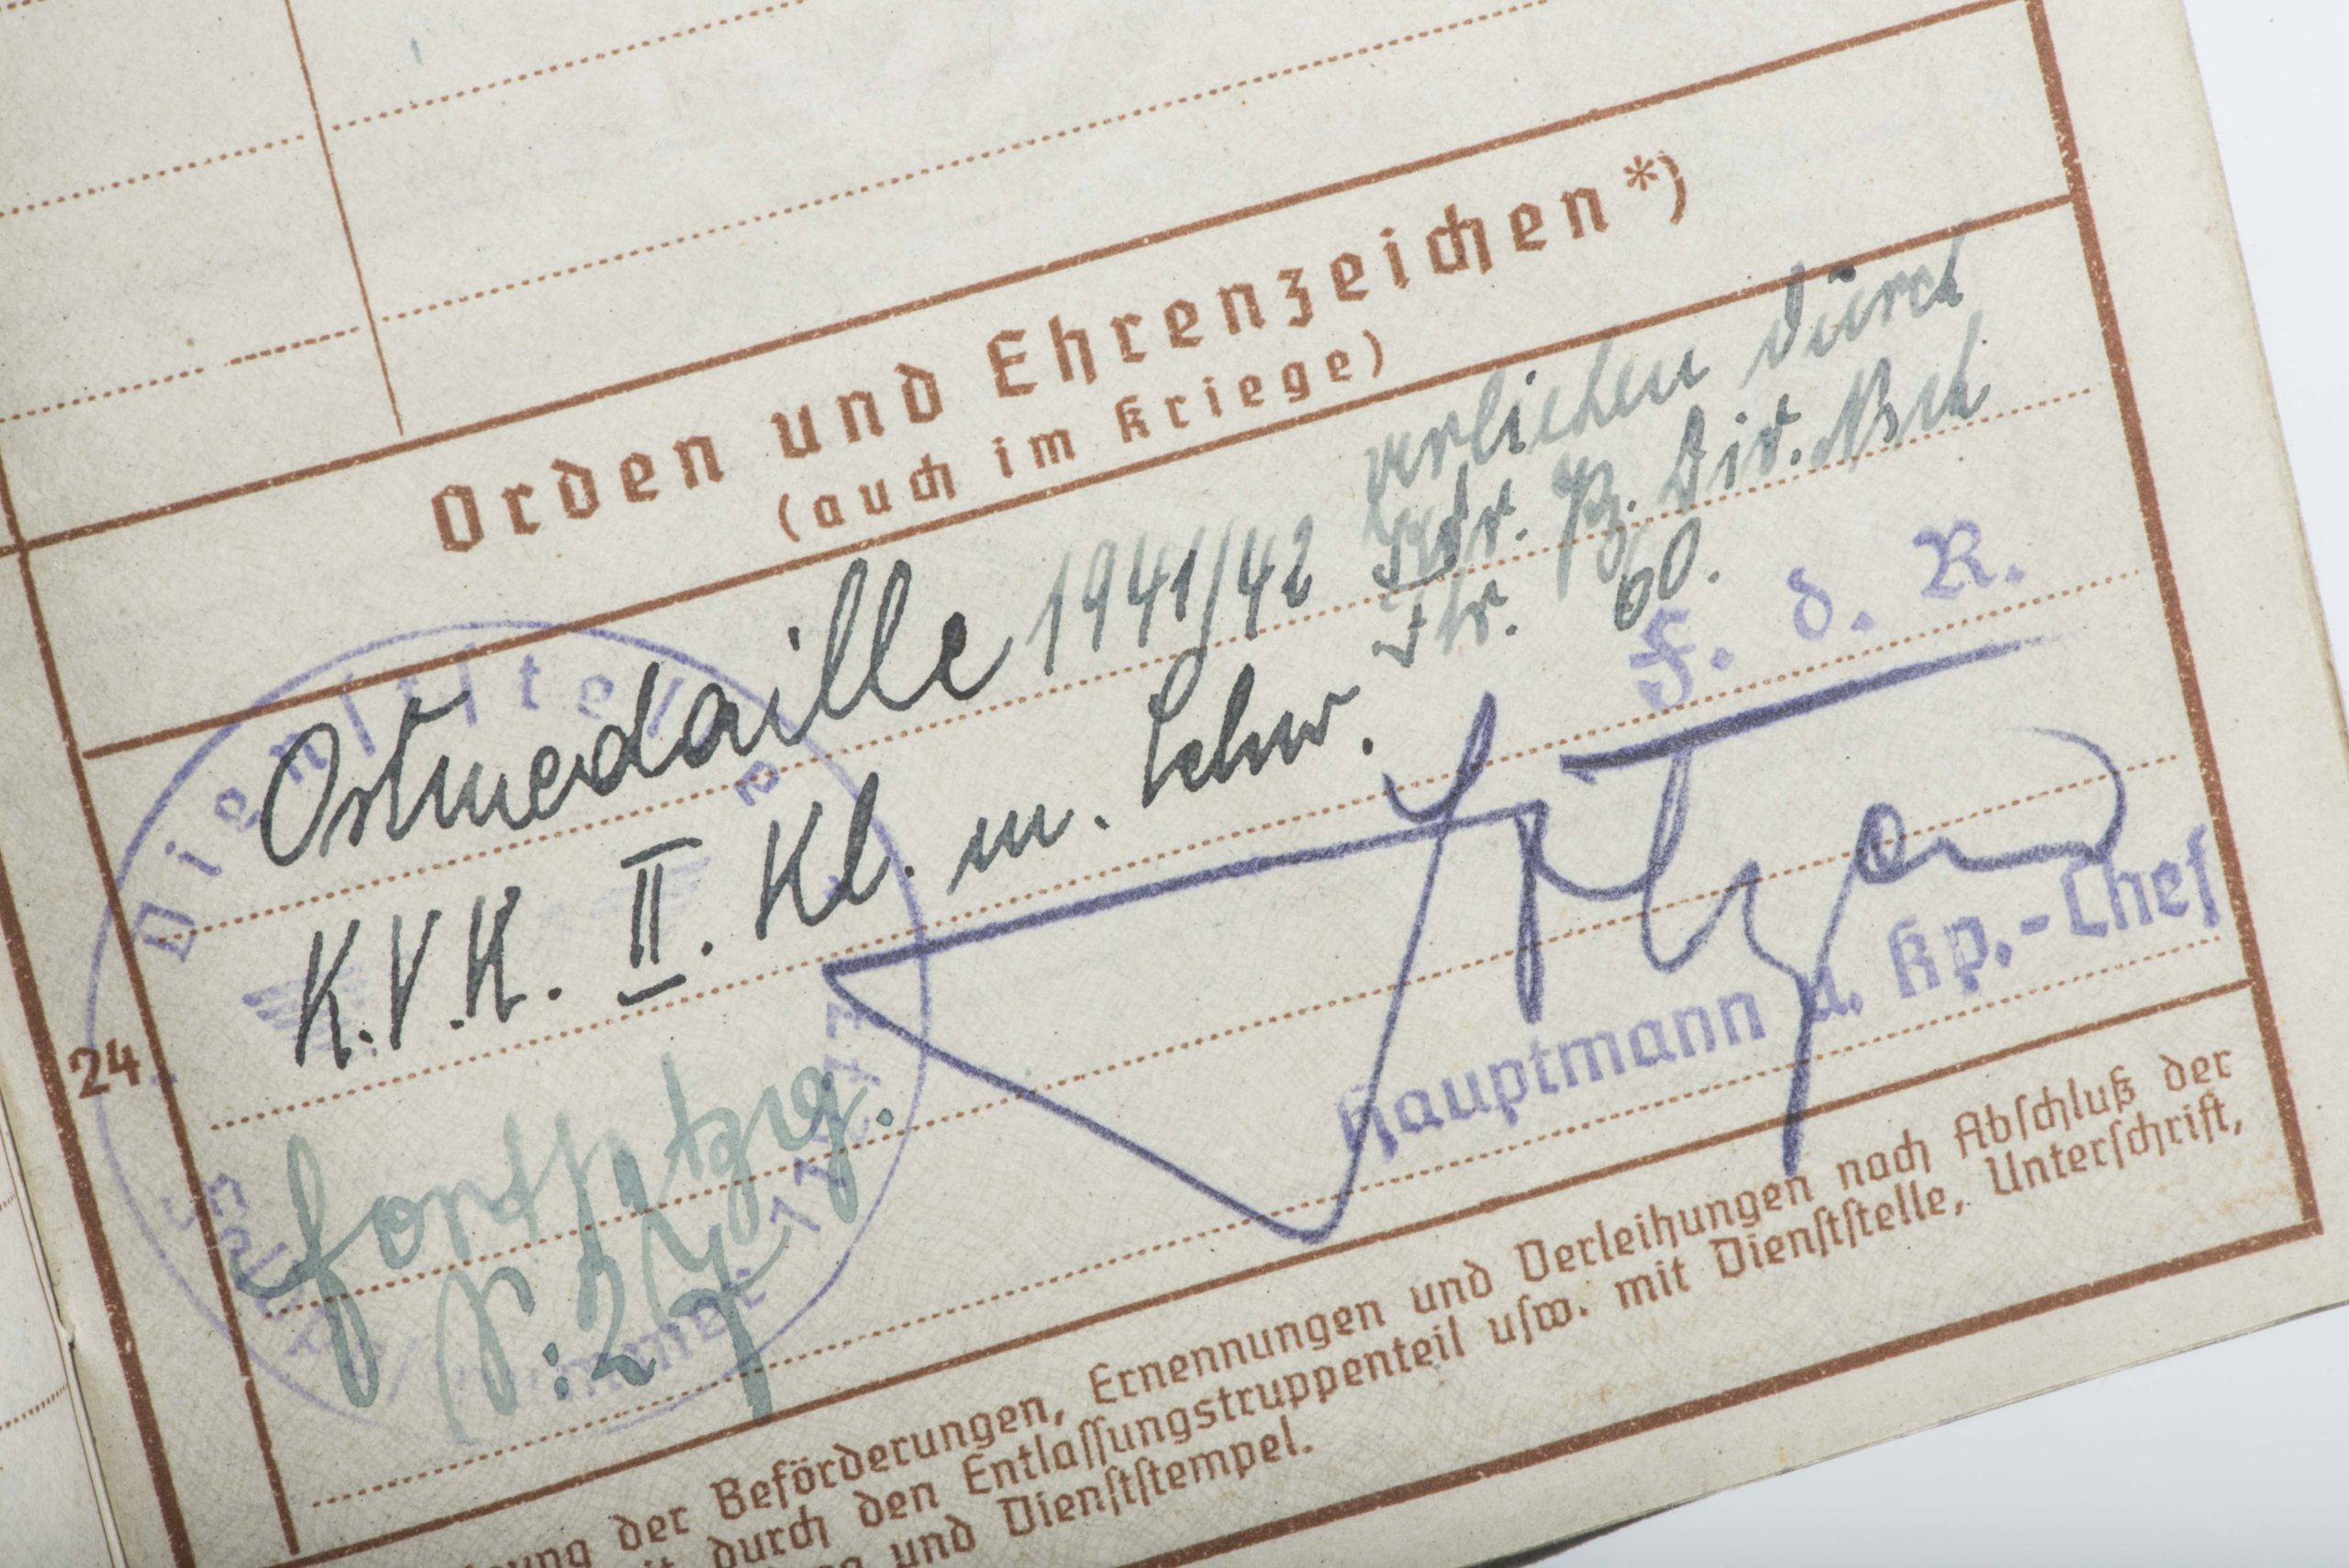 Orden und Ehrenzeichen *)
(auch im Kriege)
Ostmedaille 1941/42 verliehen durch
Kdr. Pz. Div. Nsch
Fhr. 60.
K.V.K. II. Kl. m. Schw.
F. d. R.
Hauptmann u. Kp.-Chef
24
Fortsetzg.
S. 24
Dienststelle
Feldpostnummer
der Beförderungen, Ernennungen und Verleihungen nach Abschluß der
durch den Entlassungstruppenteil usw. mit Dienststelle, Unterschrift,
und Dienststempel.